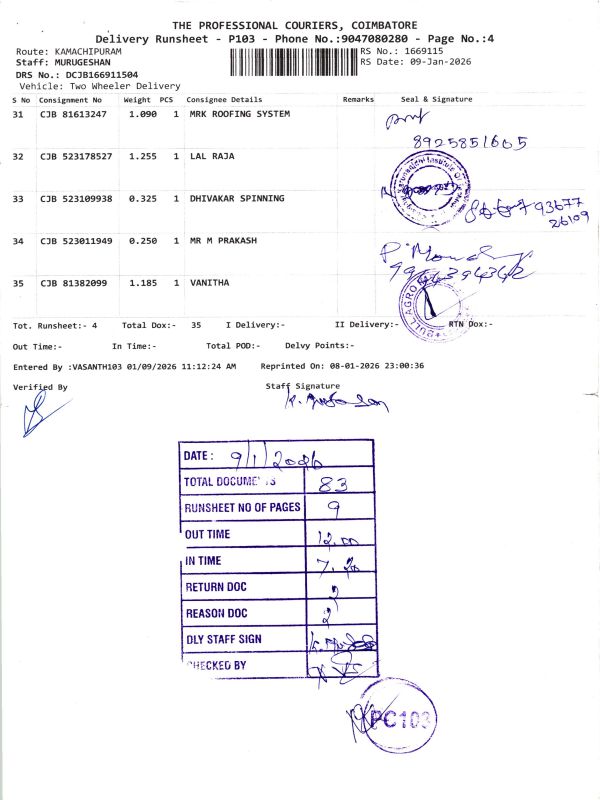 THE PROFESSIONAL COURIERS, COIMBATORE
Delivery Runsheet - P103 - Phone No.:9047080280 - Page No.:4
Route: KAMACHIPURAM
RS No.: 1669115
Staff: MURUGESHAN
RS Date: 09-Jan-2026
DRS No.: DCJB166911504
Vehicle: Two Wheeler Delivery
S No Consignment No Weight PCS Consignee Details Remarks Seal & Signature
31 CJB 81613247 1.090 1 MRK ROOFING SYSTEM
8925851605
32 CJB 523178527 1.255 1 LAL RAJA
33 CJB 523109938 0.325 1 DHIVAKAR SPINNING
93677
26109
34 CJB 523011949 0.250 1 MR M PRAKASH
35 CJB 81382099 1.185 1 VANITHA
Tot. Runsheet:- 4 Total Dox:- 35 I Delivery:- II Delivery:- RTN Dox:-
Out Time:- In Time:- Total POD:- Delvy Points:-
Entered By :VASANTH103 01/09/2026 11:12:24 AM Reprinted On: 08-01-2026 23:00:36
Verified By Staff Signature
DATE : 9/1/2026
TOTAL DOCUMENTS 83
RUNSHEET NO OF PAGES 9
OUT TIME 12.00
IN TIME
RETURN DOC 2
REASON DOC 2
DLY STAFF SIGN
CHECKED BY
PC103